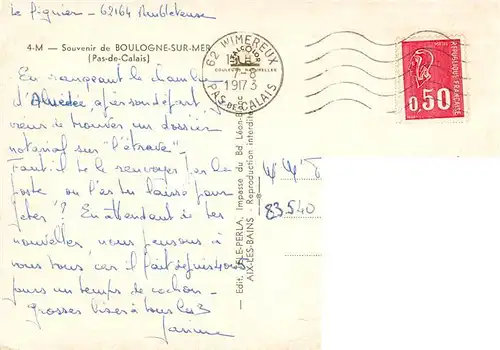 Le Piguier - 62164 Ambleteuse
4-M — Souvenir de BOULOGNE-SUR-MER
(Pas-de-Calais)
En rangeant la chambre
d'Amédée après son départ
viens de trouver un dossier
notarial sur "l'étrave".
Faut-il te le renvoyer par la
poste ou l'as tu laissé pour
jeter? En attendant de tes
nouvelles nous pensons à
vous tous car il fait depuis
jours un temps de cochon.
grosses bises à tous les 3
Edit. LA PERLA, Impasse du Bd Léon-B
AIX-LES-BAINS Reproduction interdite
62 WIMEREUX
PAS-DE-CALAIS
1973
0,50
POSTES
REPUBLIQUE FRANÇAISE
83540